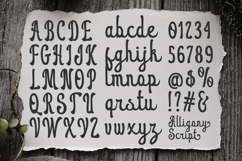 ABCDE abcde 01234
FGHIJK fghijk 56789
LMNOP lmnop @$%
QRSTU qrstu !?#&
VWXYZ vwxyz Alligany
Script